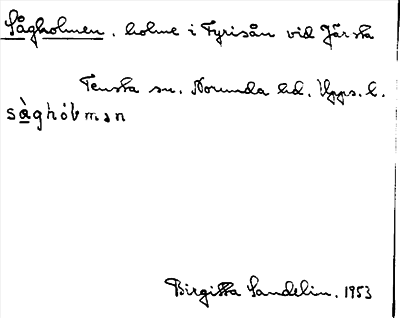 Sågholmen. holme i Fyrisån vid Järsta
Tensta sn. Norunda hd. Upps. l.
sàghòlmən
Birgitta Sandelin. 1953